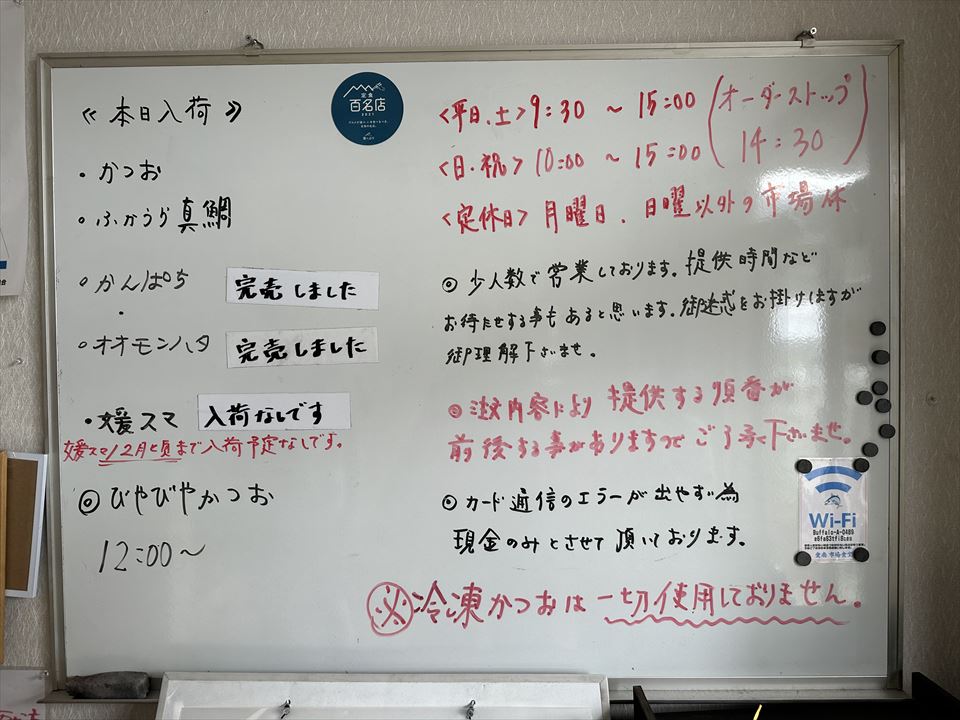 ≪本日入荷≫
・かつお
・ふかうら真鯛
・かんぱち 完売しました
・オオモンハタ 完売しました
・媛スマ 入荷なしです
媛スマ12月ヒ頃まで入荷予定なしです。
◎びやびやかつお
12:00〜
定食
百名店
2021
<平日、土> 9:30 〜 15:00 (オーダーストップ 14:30)
<日・祝> 10:00 〜 15:00
<定休日> 月曜日、日曜以外の市場休
◎少人数で営業しております。提供時間など
お待たせする事もあると思います。御迷惑をお掛けしますが
御理解下さいませ。
◎注文内容により提供する順番が
前後する事がありますのでご了承下さいませ。
◎カード通信のエラーが出やすい為
現金のみとさせて頂いております。
Wi-Fi
Buffalo-A-0489
愛南市場食堂
※冷凍かつおは一切使用しておりません。